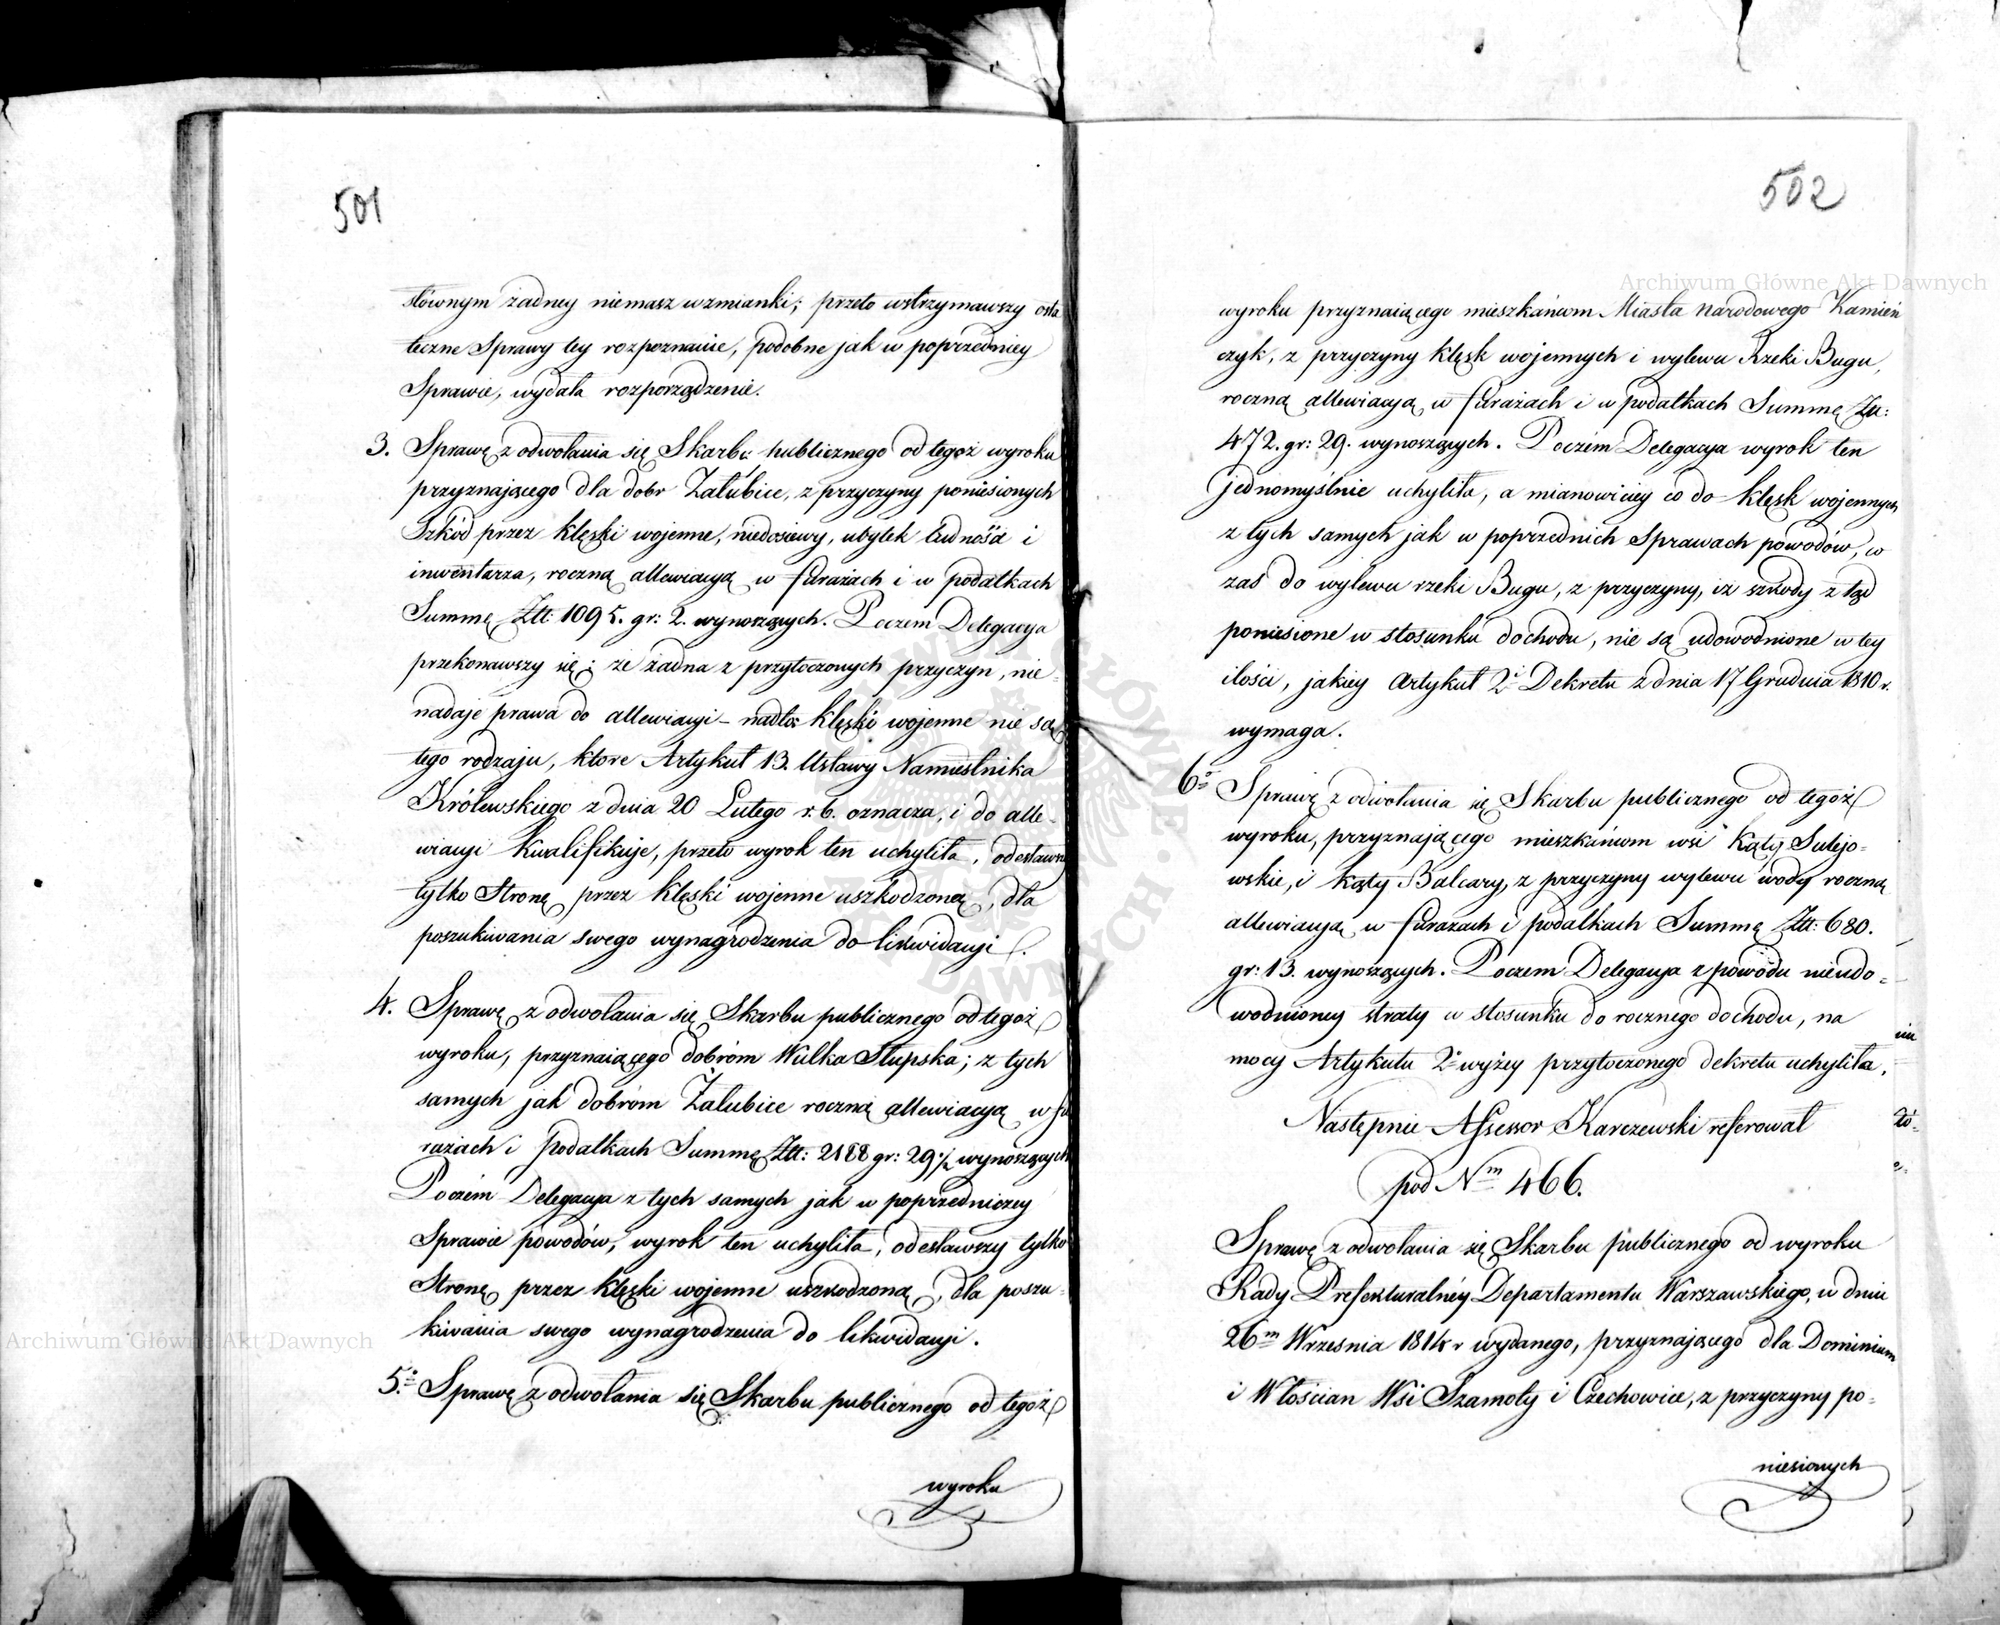 501
słównym żadney niemasz wzmianki; przeto wstrzymawszy osta
teczne Sprawy tey rozpoznanie, podobne jak w poprzedniey
Sprawie, wydała rozporządzenie.
3. Sprawę z odwołania się Skarbu publicznego od tegoż wyroku
przyznającego dla dobr Załubice, z przyczyny poniesionych
Szkód przez klęski wojenne, niedosiewy, ubytek ludności i
inwentarza, roczną allewiacyą w furażach i w podatkach
Summę Złt: 1095. gr: 2. wynoszących. Poczem Delegacya
przekonawszy się; że żadna z przytoczonych przyczyn, nie-
nadaje prawa do allewiacyi – nadto klęski wojenne nie są
tego rodzaju, ktore Artykuł 13. Ustawy Namiestnika
Królewskiego z dnia 20 Lutego r. b. oznacza, i do alle-
wiacyi kwalifikuje, przeto wyrok ten uchyliła, odesławszy
tylko Stronę przez klęski wojenne uszkodzoną, dla
poszukiwania swego wynagrodzenia do likwidacyi.
4. Sprawę z odwołania się Skarbu publicznego od tegoż
wyroku, przyznaiącego dobróm Wulka Słupska; z tych
samych jak dobróm Załubice roczną allewiacyą w fu
rażach i podatkach Summę Złt: 2188 gr: 29 1/2 wynoszących
Poczém Delegacya z tych samych jak w poprzedniczey
Sprawie powodów, wyrok ten uchyliła, odesławszy tylko
Stronę przez klęski wojenne uszkodzoną, dla poszu-
kiwania swego wynagrodzenia do likwidacyi.
5.o Sprawę z odwołania się Skarbu publicznego od tegoż
wyroku
502
wyroku przyznaiącego mieszkańcom Miasta narodowego Kamień
czyk, z przyczyny klęsk wojennych i wylewu Rzeki Bugu,
roczną allewiacyą w furażach i w podatkach Summę Zł:
472. gr: 29. wynoszących. Poczém Delegacya wyrok ten
jednomyślnie uchyliła, a mianowiciey co do klęsk wojennych
z tych samych jak w poprzednich Sprawach powodów, co
zaś do wylewu rzeki Bugu, z przyczyny, iż szkody z tąd
poniesione w stosunku dochodu, nie są udowodnione w tey
ilości, jakiey Artykuł 2i Dekretu z dnia 17 Grudnia 1810 r.
wymaga.
6o Sprawę z odwołania się Skarbu publicznego od tegoż
wyroku, przyznającego mieszkańcom wsi Kąty Sulejo-
wskie, i Kąty Balcary, z przyczyny wylewu wody roczną
allewiacyą w furażach i podatkach Summę Złt: 680.
gr: 13. wynoszących. Poczem Delegacya z powodu nieudo-
wodnioney straty w stosunku do rocznego dochodu, na
mocy Artykułu 2o wyżey przytoczonego dekretu uchyliła.
Następnie Assessor Karczewski referował
pod Nm 466.
Sprawę z odwołania się Skarbu publicznego od wyroku
Rady Prefekturalnéy Departamentu Warszawskiego, w dniu
26m Września 1814 r wydanego, przyznającego dla Dominium
i Włościan Wsi Szamoty i Czechowice, z przyczyny po-
niesionych
Archiwum Główne Akt Dawnych
Archiwum Główne Akt Dawnych